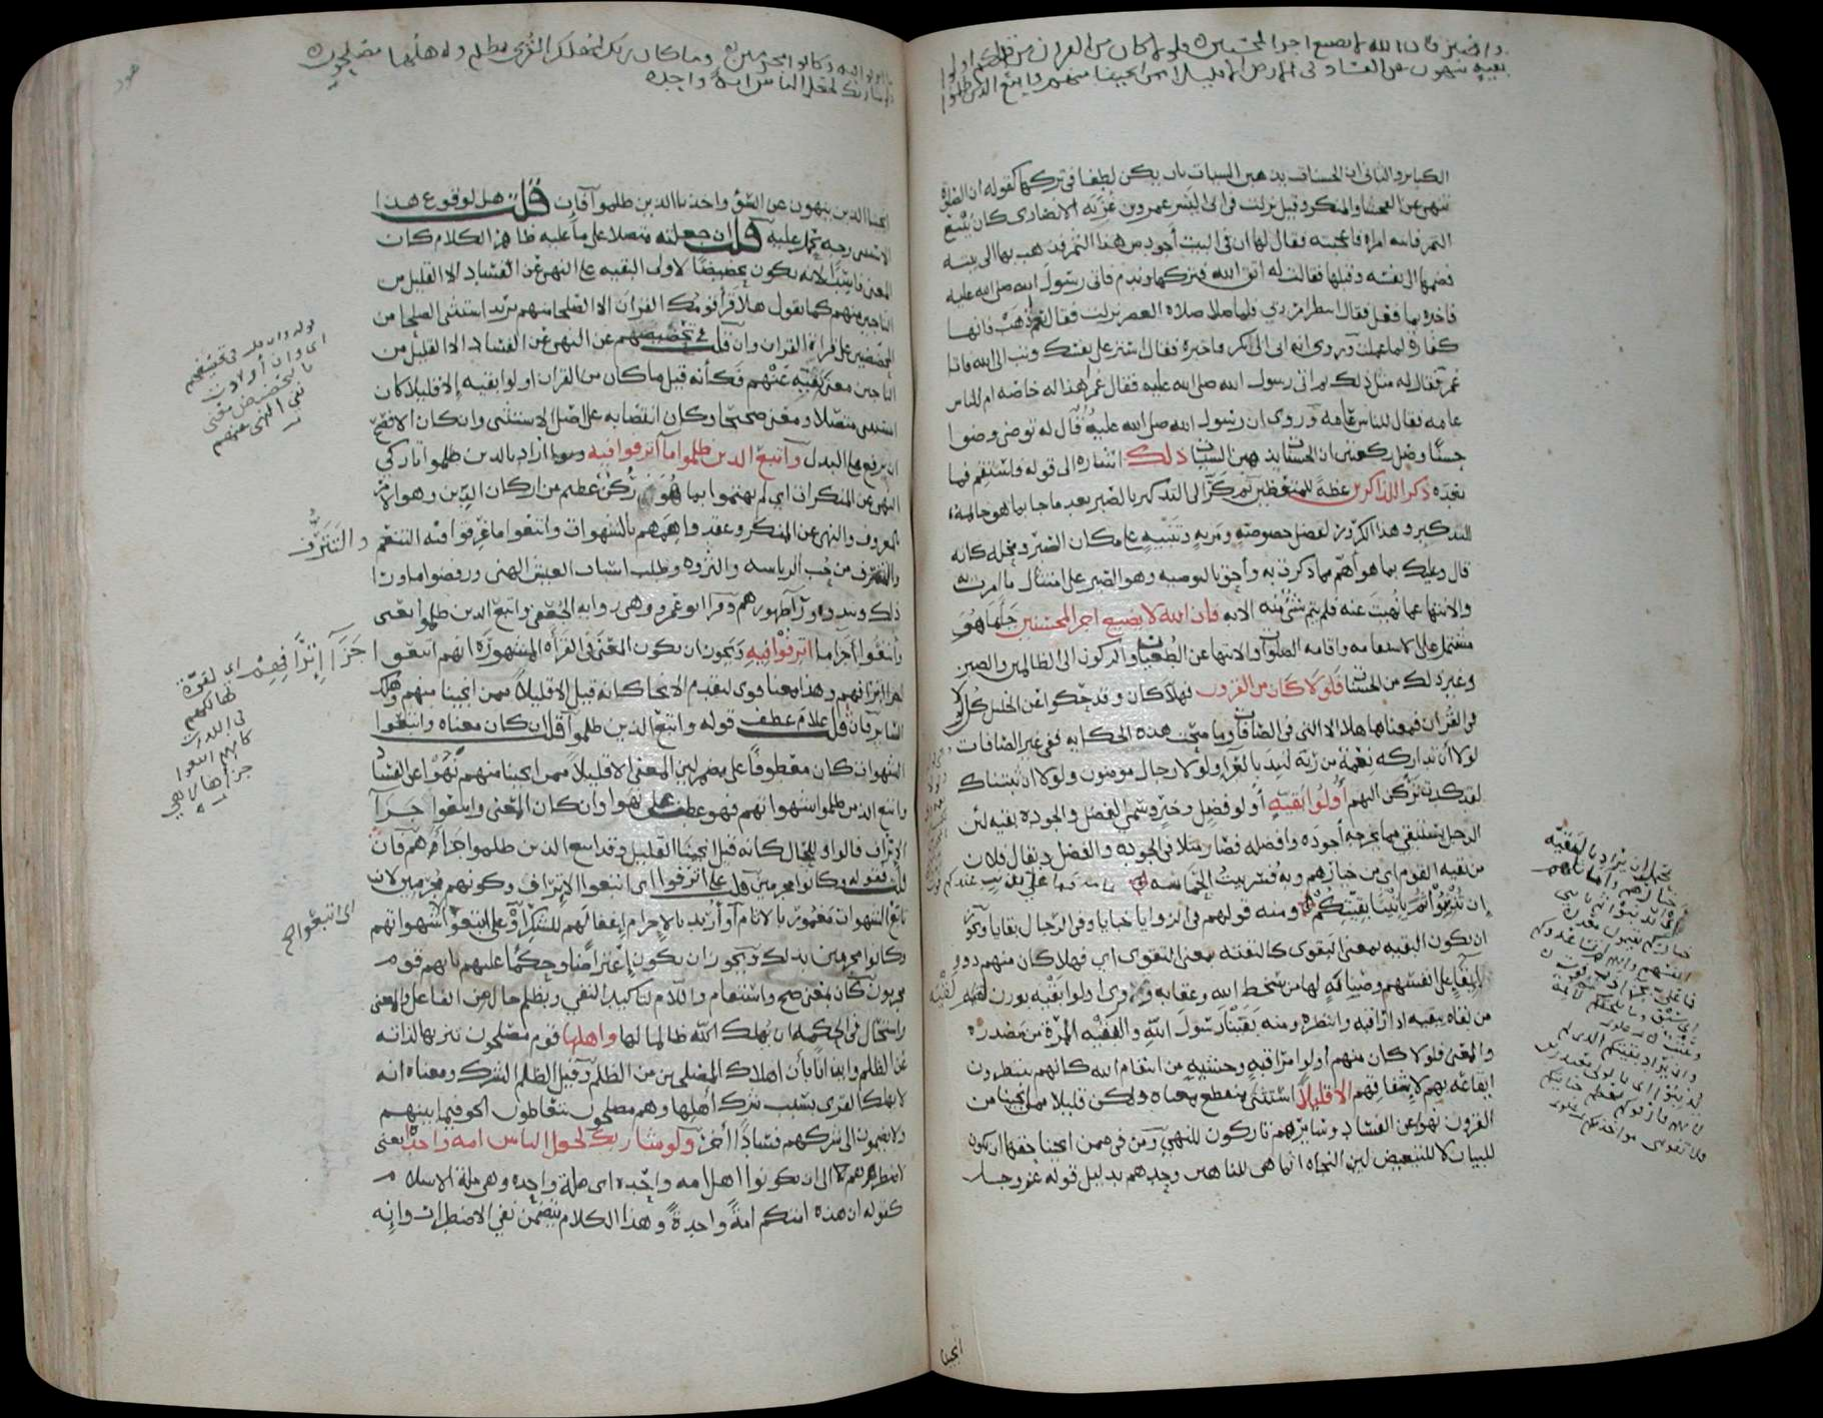 واصبر فان الله لا يضيع اجر المحسنين فلولا كان من القرون من قبلكم اولوا
بقية ينهون عن الفساد في الارض الا قليلا ممن انجينا منهم واتبع الذين ظلموا
الكبائر والثاني ان الحسنات يذهبن السيات بان يكن لطفا في تركها كقوله ان الصلوة
تنهى عن الفحشا والمنكر وقيل نزلت في ابي اليسر عمرو بن غزية الانصاري كان يبيع
التمر فاتته امراة فاعجبته فقال لها ان في البيت أجود من هذا التمر فذهب بها الى بيته
فضمها الى نفسه وقبلها فقالت له اتق الله فتركها وندم فاتى رسول الله صلى الله عليه
فاخبره بما فعل فقال انتظر امر ربي فلما صلا صلاة العصر نزلت فقال نعم اذهب فانها
كفارة لما عملت وروي انه اتى ابا بكر فاخبره فقال استر على نفسك وتب الى الله فاتا
عمر فقال له مثل ذلك ثم اتى رسول الله صلى الله عليه فقال عمر اهذا له خاصة ام للناس
عامة فقال للناس عامة وروى ان رسول الله صلى الله عليه قال له توضى وضوا
حسنا وصل ركعتين ان الحسنات يذهبن السيات ذلك اشارة الى قوله فاستقم فما
بعده ذكرا للذاكرين عظة للمتعظين ثم كر الى التذكير بالصبر بعد ما جا بما هو خاتمة
للتذكير وهذا الكرور لفضل خصوصية ومزية وتنبيه على مكان الصبر ومحله كانه
قال وعليك بما هو اهم مما ذكرت به واحق بالتوصية وهو الصبر على امتثال ما امرت به
والانتها عما نهيت عنه فلم يتم شئ منه الا به فان الله لا يضيع اجر المحسنين جا بما هو
مشتمل على الاستقامه واقامه الصلوات والانتها عن الطغيان والركون الى الظالمين والصبر
وغير ذلك من الحسنات فلولا كان من القرون فهلا كان وقد حكوا عن الخليل كل لولا
في القران فمعناها هلا الا التي في الصافات وما صحت هذه الحكايه ففي غير الصافات
لولا أن تداركه نعمة من ربه لنبذ بالعرا ولولا رجال مومنون ولولا ان ثبتناك
لقد كدت تركن اليهم أولوا بقية أولو فضل وخير وسمي الفضل والجودة بقية لان
الرجل يستبقي مما يخرجه أجوده وأفضله فصار مثلا في الجودة والفضل ويقال فلان
من بقية القوم اي من خيارهم وبه فسر بيت الحماسه
إن تذنبوا ثم يأتيني بقيتكم ومنه قولهم في الزوايا خبايا وفي الرجال بقايا ويجوز
ان يكون البقيه بمعنى البقوى كالتقية بمعنى التقوى اي فهلا كان منهم ذوو
إبقاء على انفسهم وصيانة لها من سخط الله وعقابه وقرئ اولوا بقية بوزن لقية
من بقاه يبقيه اذا راقبه وانتظره ومنه بقينا رسول الله والبقية المرة من مصدره
والمعنى فلولا كان منهم أولوا مراقبة وخشية من انتقام الله كانهم ينتظرون
ايقاعه بهم لاشفاقهم الا قليلا استثنى منقطع معناه ولكن قليلا ممن انجينا من
القرون نهوا عن الفساد وسايرهم تاركون للنهي ومن في ممن انجينا حقها ان تكون
للبيان لا للتبعيض لان النجاة انما هي للناهين وحدهم بدليل قوله عز وجل
انجينا
ما اترفوا فيه وكانوا مجرمين وما كان ربك ليهلك القرى بظلم واهلها مصلحون
ولو شا ربك لجعل الناس امة واحده
هود
انجينا الذين ينهون عن السوء واخذنا الذين ظلموا فإن قلت هل لوقوع هذا
الاستثنى وجه يحمل عليه قلت ان جعلته متصلا على ما عليه ظاهر الكلام كان
المعنى فاسدا لانه يكون تحضيضا لاولى البقيه على النهي عن الفساد الا القليل من
الناجين منهم كما تقول هلا قرأ قومك القران الا الصلحا منهم تريد استثنى الصلحا من
المحضضين على قراة القران وان قلت في تحضيضهم عن النهي عن الفساد الا القليل من
الناجين معنى نفيه عنهم فكأنه قيل ما كان من القران اولوا بقيه إلا قليلا كان
استثنى متصلا ومعنى صحيحا وكان انتصابه على اصل الاستثنى وان كان الافصح
ان يرفع على البدل واتبع الذين ظلموا ما أترفوا فيه اراد بالذين ظلموا تاركي
النهي عن المنكرات اي لم يهتموا بما هو ركن عظيم من اركان الدين وهو الامر
بالمعروف والنهي عن المنكر وعقدوا هممهم بالشهوات واتبعوا ما عرفوا فيه التنعم والتترف
من حب الرياسه والثروه وطلب اسباب العيش الهني ورفضوا ما ورا
ذلك ونبذوه ورا ظهورهم وقرا ابو عمرو في روايه الجعفي واتبع الذين ظلموا يعني
واتبعوا جزا ما اترفوا فيه ويجوز ان يكون المعنى في القراة المشهورة انهم اتبعوا جزآ إترافهم
وهذا معنا قوي لتقدم الانجا كانه قيل الا قليلا ممن انجينا منهم وهلك
الساير فان قلت علام عطف قوله واتبع الذين ظلموا قلت ان كان معناه واتبعوا
الشهوات كان معطوفا على مضمر لان المعنى الا قليلا ممن انجينا منهم نهوا عن الفساد
واتبع الذين ظلموا شهواتهم فهو عطف على نهوا وان كان المعنى واتبعوا جزآ
الإتراف فالواو للحال كانه قيل انجينا القليل وقد اتبع الذين ظلموا جزآهم فان
قلت فقوله وكانوا مجرمين قلت على اترفوا اي اتبعوا الإتراف وكونهم مجرمين لان
تابع الشهوات مغمور بالاثام أو أريد بالاجرام إغفالهم للشكر أو على اتبعوا اي اتبعوا شهواتهم
وكانوا مجرمين بذلك ويجوز ان يكون إعتراضا وحكما عليهم بانهم قوم
مجرمون كان بمعنى صح واستقام واللام لتاكيد النفي وبظلم حال من الفاعل والمعنى
واستحال في الحكمه ان يهلك الله ظالما لها واهلها قوم مصلحون تنزيها لذاته
عن الظلم وايذانا بأن اهلاك المصلحين من الظلم وقيل الظلم الشرك ومعناه انه
لا يهلك القرى بسبب شرك أهلها وهم مصلحون يتعاطون الحق فيما بينهم
ولا يضمون الى شركهم فسادا آخر ولو شا ربك لجعل الناس امة واحدة يعني
لاضطرهم الى ان يكونوا اهل امه واحده اى ملة واحده وهي ملة الاسلام
كقوله ان هذه امتكم امة واحدة وهذا الكلام يتضمن نفي الاضطرار وانه
اى اتبعوا شهواتهم